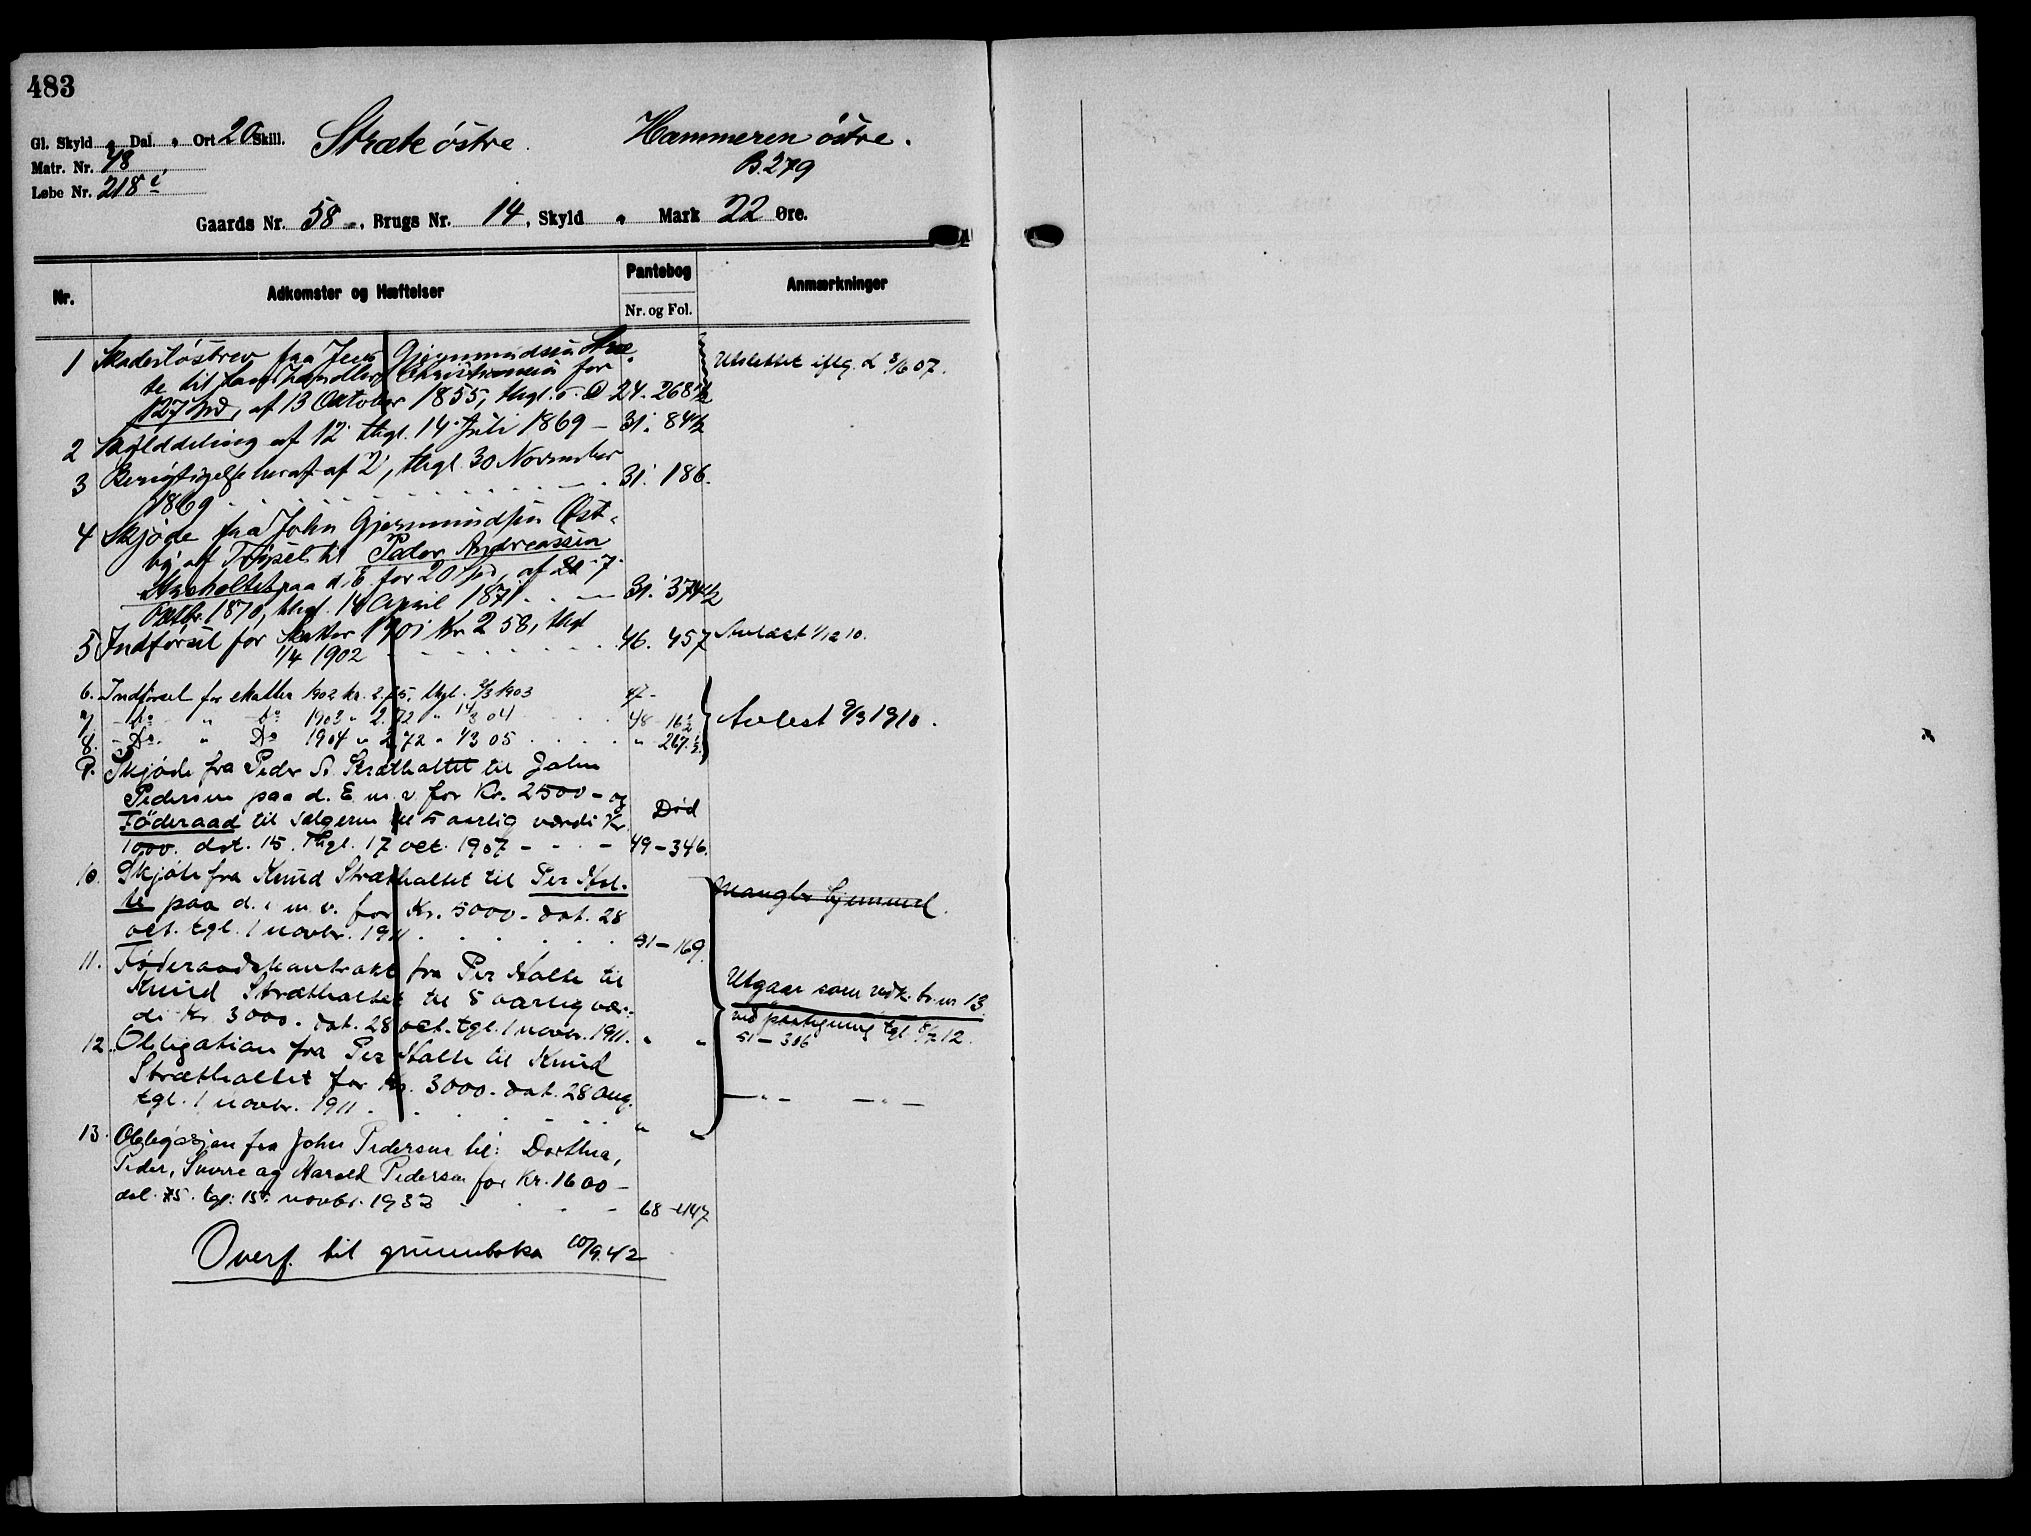 483
Gl. Skyld " Dal. " Ort 20 Skill. Stræte østre. Hammeren østre.
Matr. Nr. 48 B. 279
Løbe Nr. 218 i
Gaards Nr. 58, Brugs Nr. 14, Skyld " Mark 22 Øre.
Nr. Adkomster og Hæftelser Pantebog Anmærkninger
Nr. og Fol.
1 Skadesløsbrev fra Jens Gjermundsen Stræ-
te til Christiania for Udslettet iflg.
127 Spd, af 13 Oktober 1855, thgl. 24. 268
2 Skylddeling af 12 thgl. 14 Juli 1869 — 31. 84½
3 Berigtigelse heraf af 2, thgl. 30 November
1869 31. 186.
4 Skjøde fra John Gjermundsen Øst-
by af Trysil til Peder Andreassen
Stræholtet paa d. E. for 20 Spd, af 7
Oktbr. 1870, thgl. 14 April 1871 31. 374½
5 Indførsel for Skatter 1901 Kr. 2 58, thgl
1/4 1902 46. 457 Avlæst 1/12 10.
6. Indførsel for skatter 1902 kr. 2.75, thgl. 2/3 1903 47 -
7. - Do - " - Do 1903 " 2.72 " 14/3 04 48 16½ Avlest 9/3 1910.
8. - Do - " Do 1904 " 2.72 " 1/3 05 " 267½
9. Skjøde fra Peder A. Strætholtet til John
Pedersen paa d. E. m. v for Kr. 2500 - og Død
Føderaad til sælgeren til 5 aarlig værdi Kr.
1000. dat. 15. Thgl. 17 oct. 1907 - 49 - 346.
10. Skjøte fra Knud Strætholtet til Per Hol-
te paa d. e m. v. for Kr. 5000 - dat. 28 Mangler hjemmel.
oct. tgl. 1 novbr. 1911 51 - 169.
11. Føderaadskontrakt fra Per Holte til
Knud Strætholtet til 5 aarlig vær- Utgaar som vedk. br. nr 13
di Kr. 3000. dat. 28 oct. tgl. 1 novbr. 1911. " " ved paategning tgl. 12.
51 - 306
12. Obligation fra Per Holte til Knud
Strætholtet for Kr. 3000. dat. 28 Aug.
tgl. 1 novbr. 1911. " " — " — — " —
13. Obligasjon fra John Pedersen til: Dorthea,
Peder, Sverre og Harold Pedersen for Kr. 1600 —
dat. 15. tgl. 15 novbr. 1933 68 - 147
Overf. til grunnboka 10/9.42